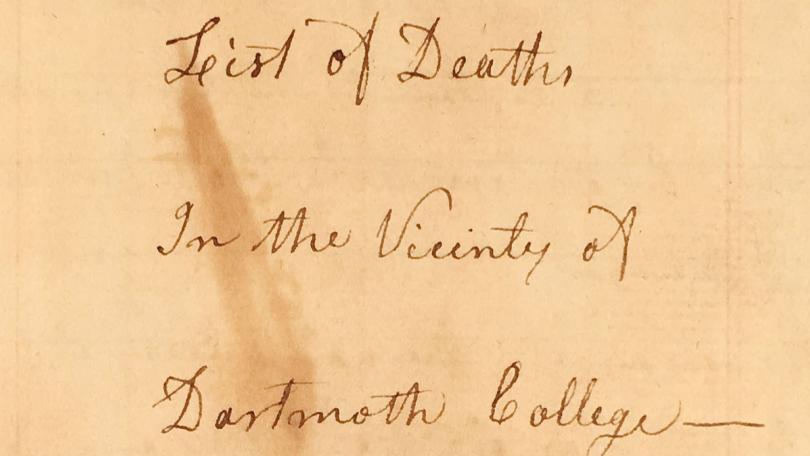 List of Deaths
In the Vicinty of
Dartmoth College—